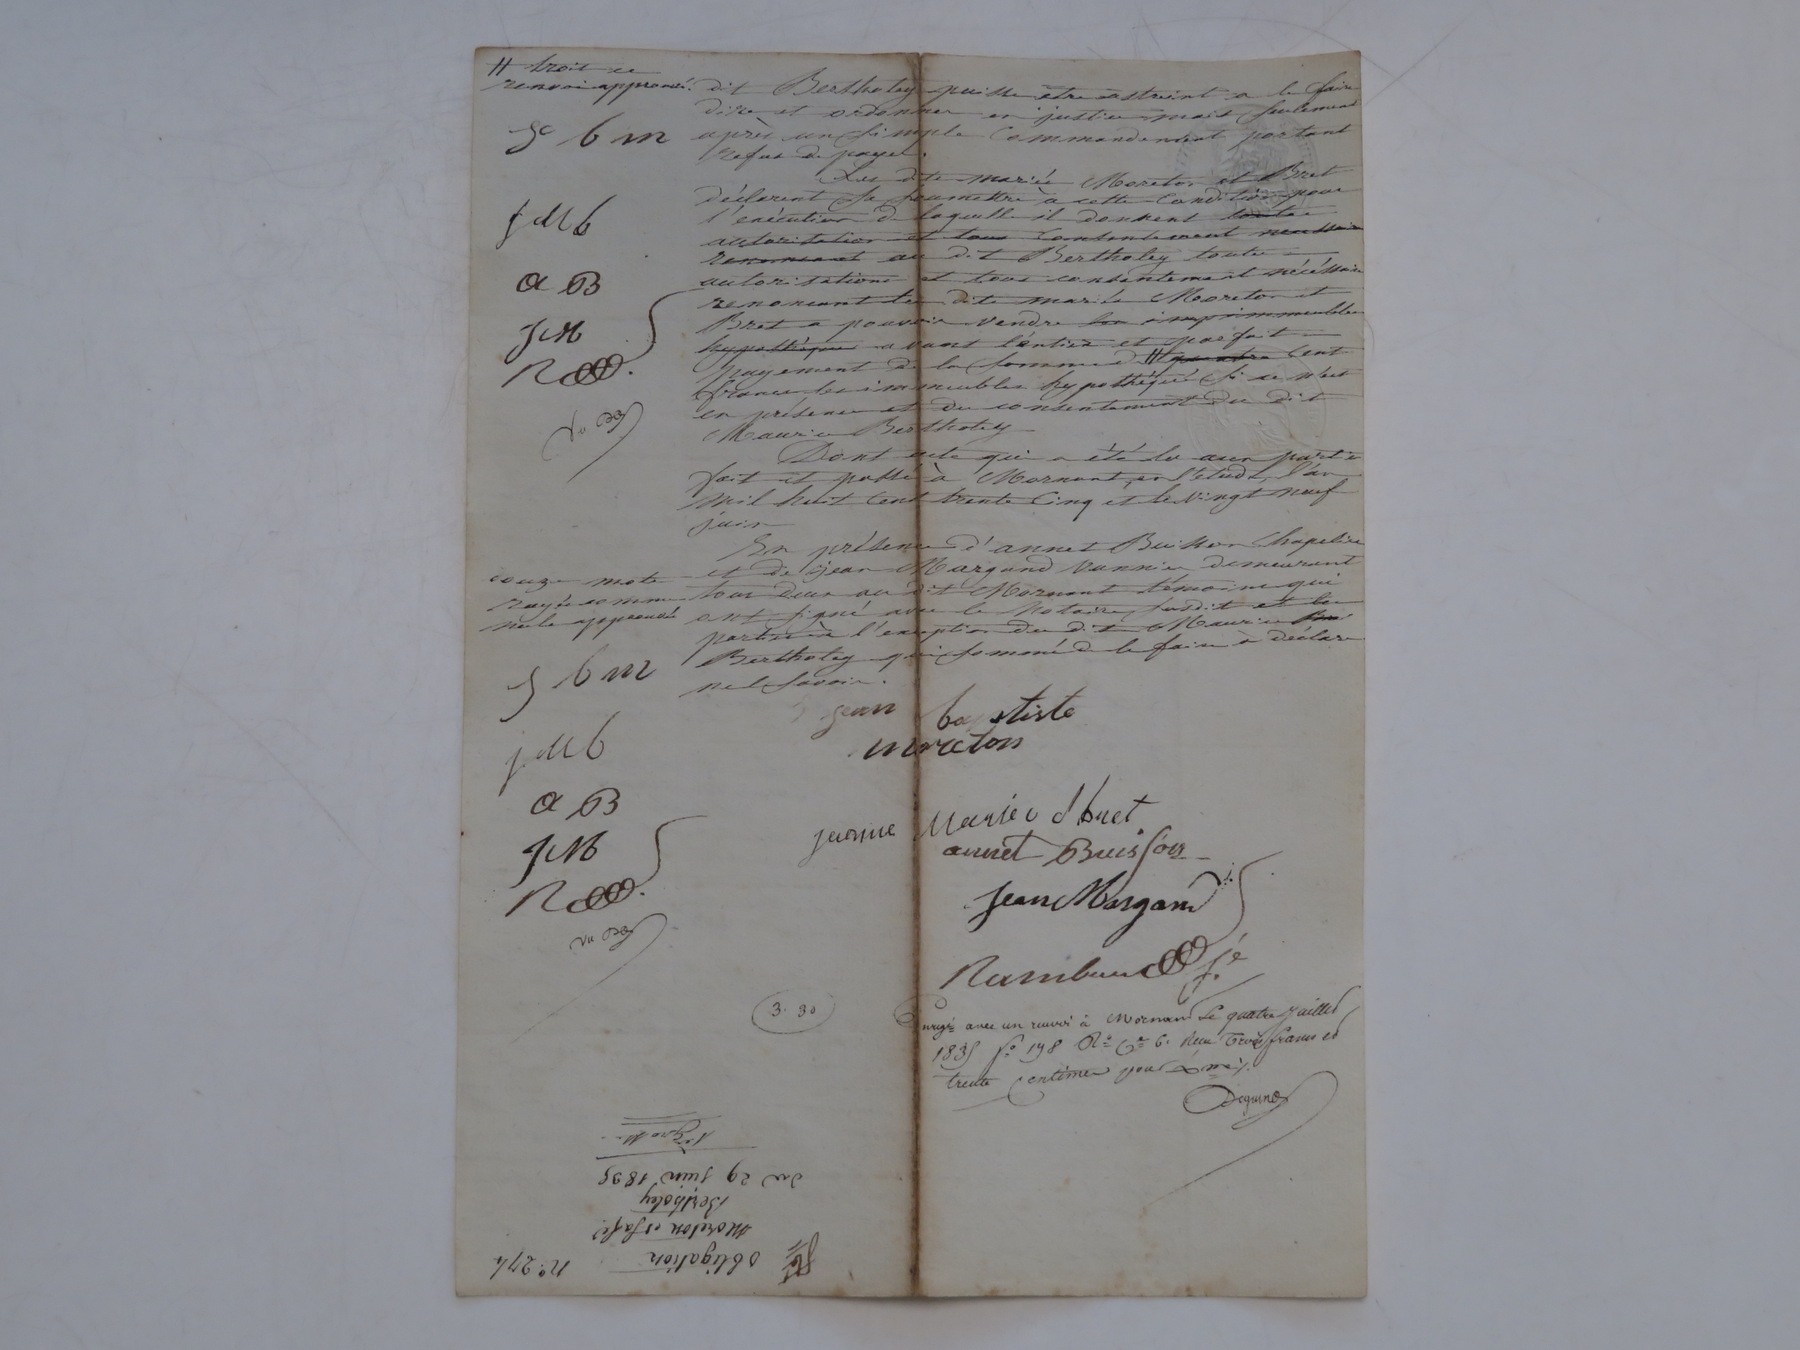 # trois ce
renvoi approuvé.
dit Bertholey puisse être astreint a le faire
dire et ordonner en justice mais seulement
après un simple commandement portant
refus de payer.
Les dits mariés Moreton et Bret
déclarent se soumettre à cette condition pour
l'exécution de laquelle il donnent toute
autorisation et tous consentement nécessaire
renoncant au dit Bertholey toute
autorisation et tous consentement nécéssaire
renoncant les dits mariés Moreton et
Bret a pouvoir vendre les immeubles
hypothéqués avant l'entier et parfait
payement de la somme de # quatre cent
francs les immeubles hypothéqués si ce n'est
en présence et du consentement du dit
Maurice Bertholey
Dont acte qui a été lu aux parties
fait et passé à Mornant en l'étude, l'an
mil huit cent trente cinq et le vingt neuf
juin
En présence d'annet Buisson Chapelier
et de jean Margand vannier demeurant
tous deux au dit Mornant témoins qui
ont signé avec le notaire susdit et les
parties à l'exception du dit Maurice
Bertholey qui sommé de le faire a déclaré
ne le savoir.
J b m
j M b
a B
J M
R
Vu
onze mots
rayés comme
nuls approuvé
J b m
j M b
a B
J M
R
Vu
jean baptiste
moreton
jeanne Mariee bret
annet Buisson
Jean Margand
Rambaud
3. 30
Enregé avec un renvoi à Mornant le quatre juillet
1835 fo 198 Ro Ce 6. Reçu trois francs et
trente centimes pour
Deguine
No 274
obligation
Moreton et sa fe
Bertholey
du 29 juin 1835
1re grosse